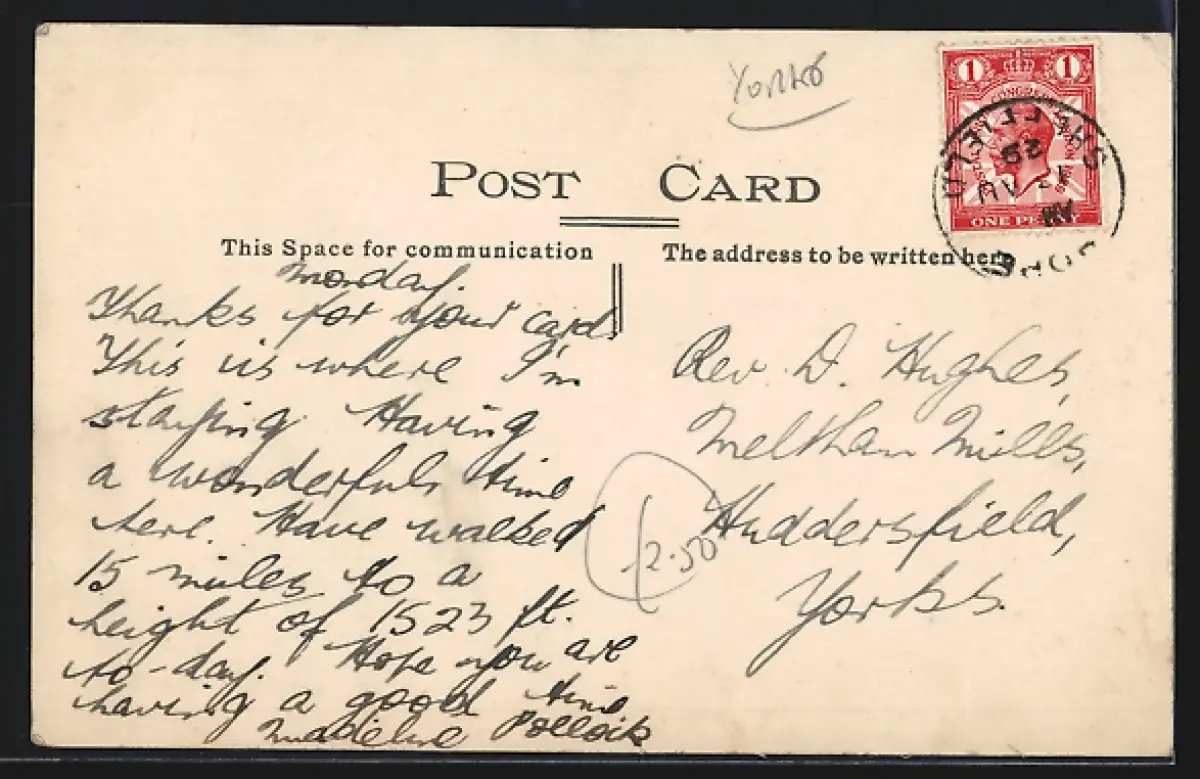 Yorks
POST CARD
This Space for communication
The address to be written here
Monday.
Thanks for your card.
This is where I'm
staying Having
a wonderful time
here. Have walked
15 miles to a
height of 1523 ft.
to-day. Hope you are
having a good time
Madeline Pollock
Rev. D. Hughes,
Meltham Mills,
Huddersfield,
Yorks.
2.50
1 1
ONE PENNY
SHEFFIELD
12 AU
29